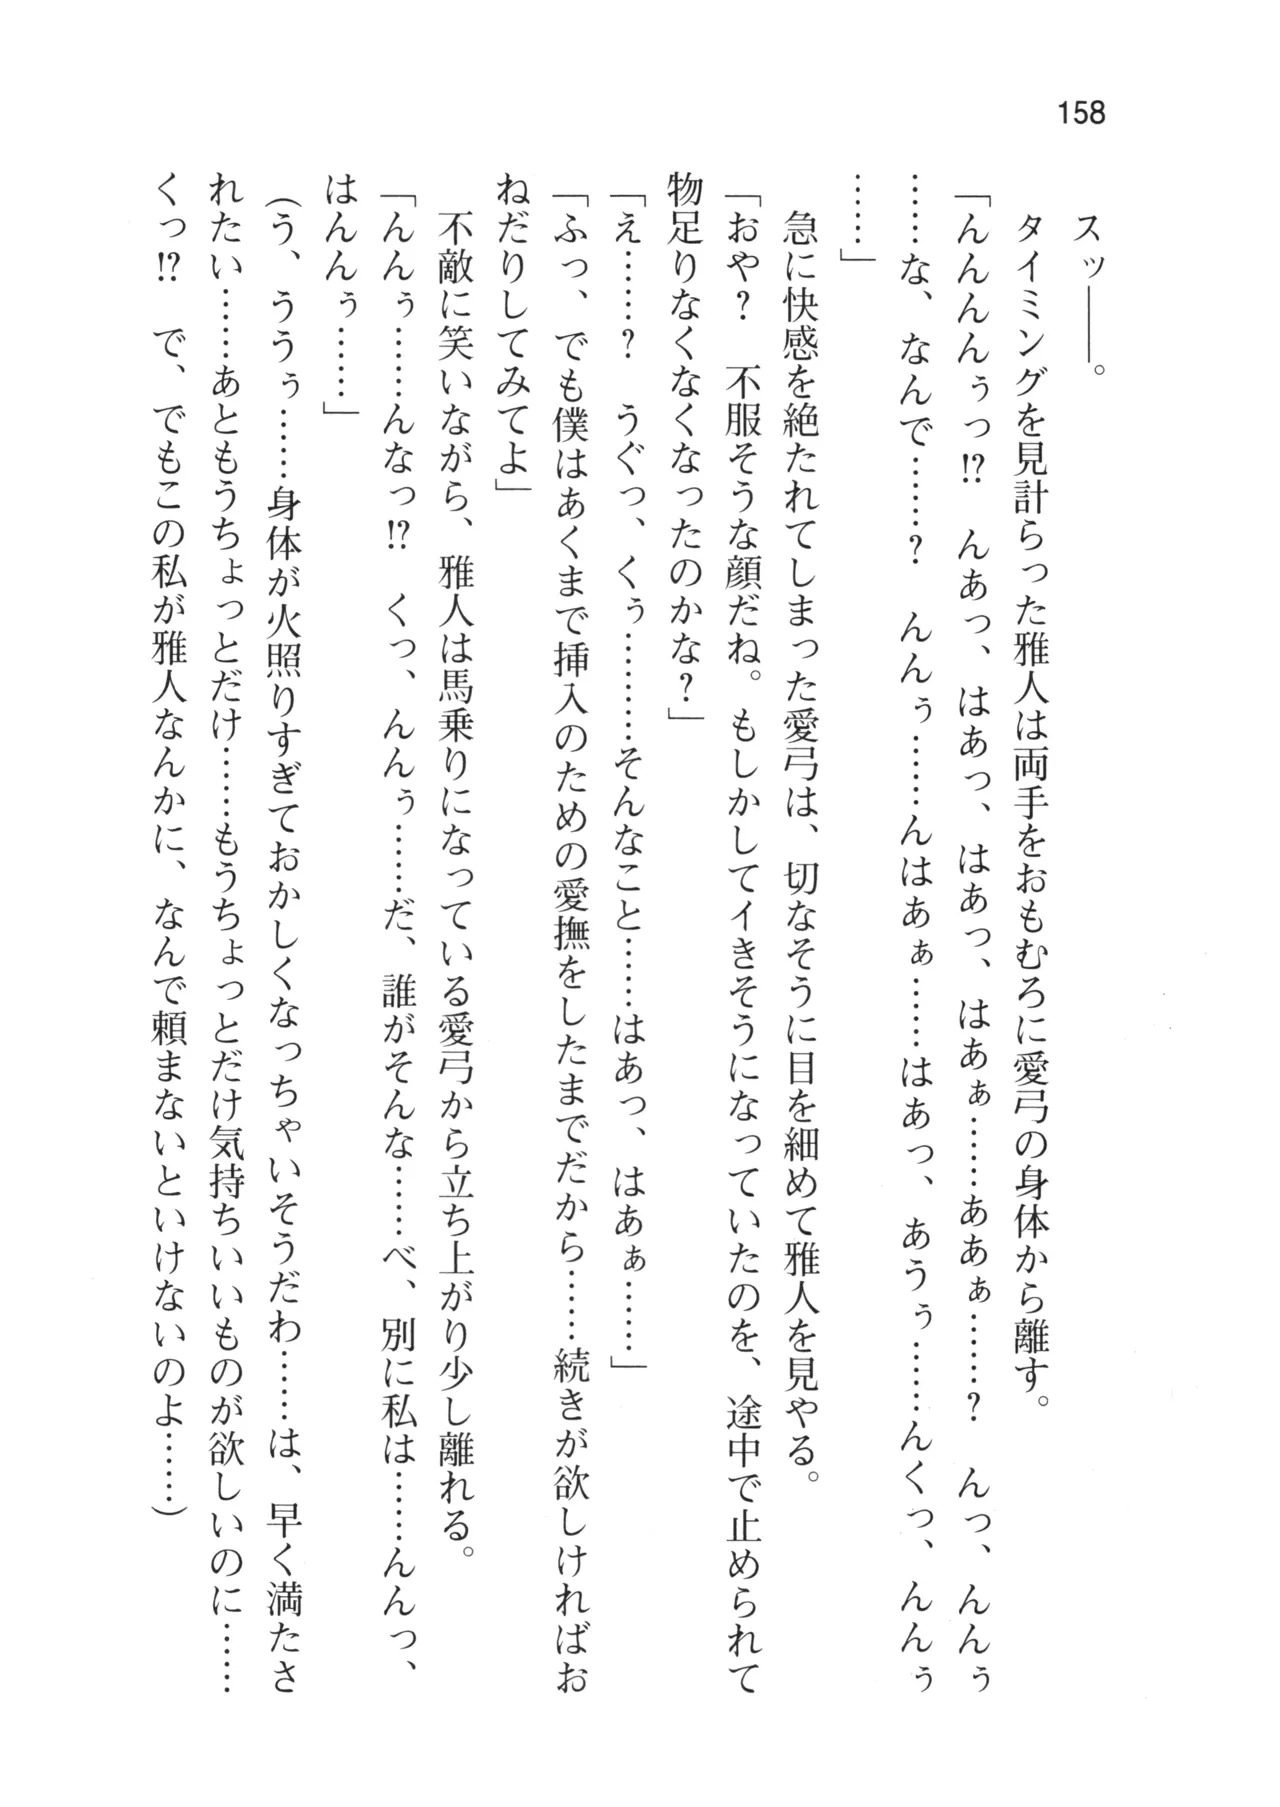 158
スッ――。
タイミングを見計らった雅人は両手をおもむろに愛弓の身体から離す。
「んんんんぅっ!?　んあっ、はあっ、はあっ、はあぁ……ああぁ……？　んっ、んんぅ
……な、なんで……？　んんぅ……んはあぁ……はあっ、あうぅ……んくっ、んんぅ
……」
急に快感を絶たれてしまった愛弓は、切なそうに目を細めて雅人を見やる。
「おや？　不服そうな顔だね。もしかしてイきそうになっていたのを、途中で止められて
物足りなくなくなったのかな？」
「え……？　うぐっ、くぅ………そんなこと……はあっ、はあぁ……」
「ふっ、でも僕はあくまで挿入のための愛撫をしたまでだから……続きが欲しければお
ねだりしてみてよ」
不敵に笑いながら、雅人は馬乗りになっている愛弓から立ち上がり少し離れる。
「んんぅ……んなっ!?　くっ、んんぅ……だ、誰がそんな……べ、別に私は……んんっ、
はんんぅ……」
（う、ううぅ……身体が火照りすぎておかしくなっちゃいそうだわ……は、早く満たさ
れたい……あともうちょっとだけ……もうちょっとだけ気持ちいいものが欲しいのに……
くっ!?　で、でもこの私が雅人なんかに、なんで頼まないといけないのよ……）